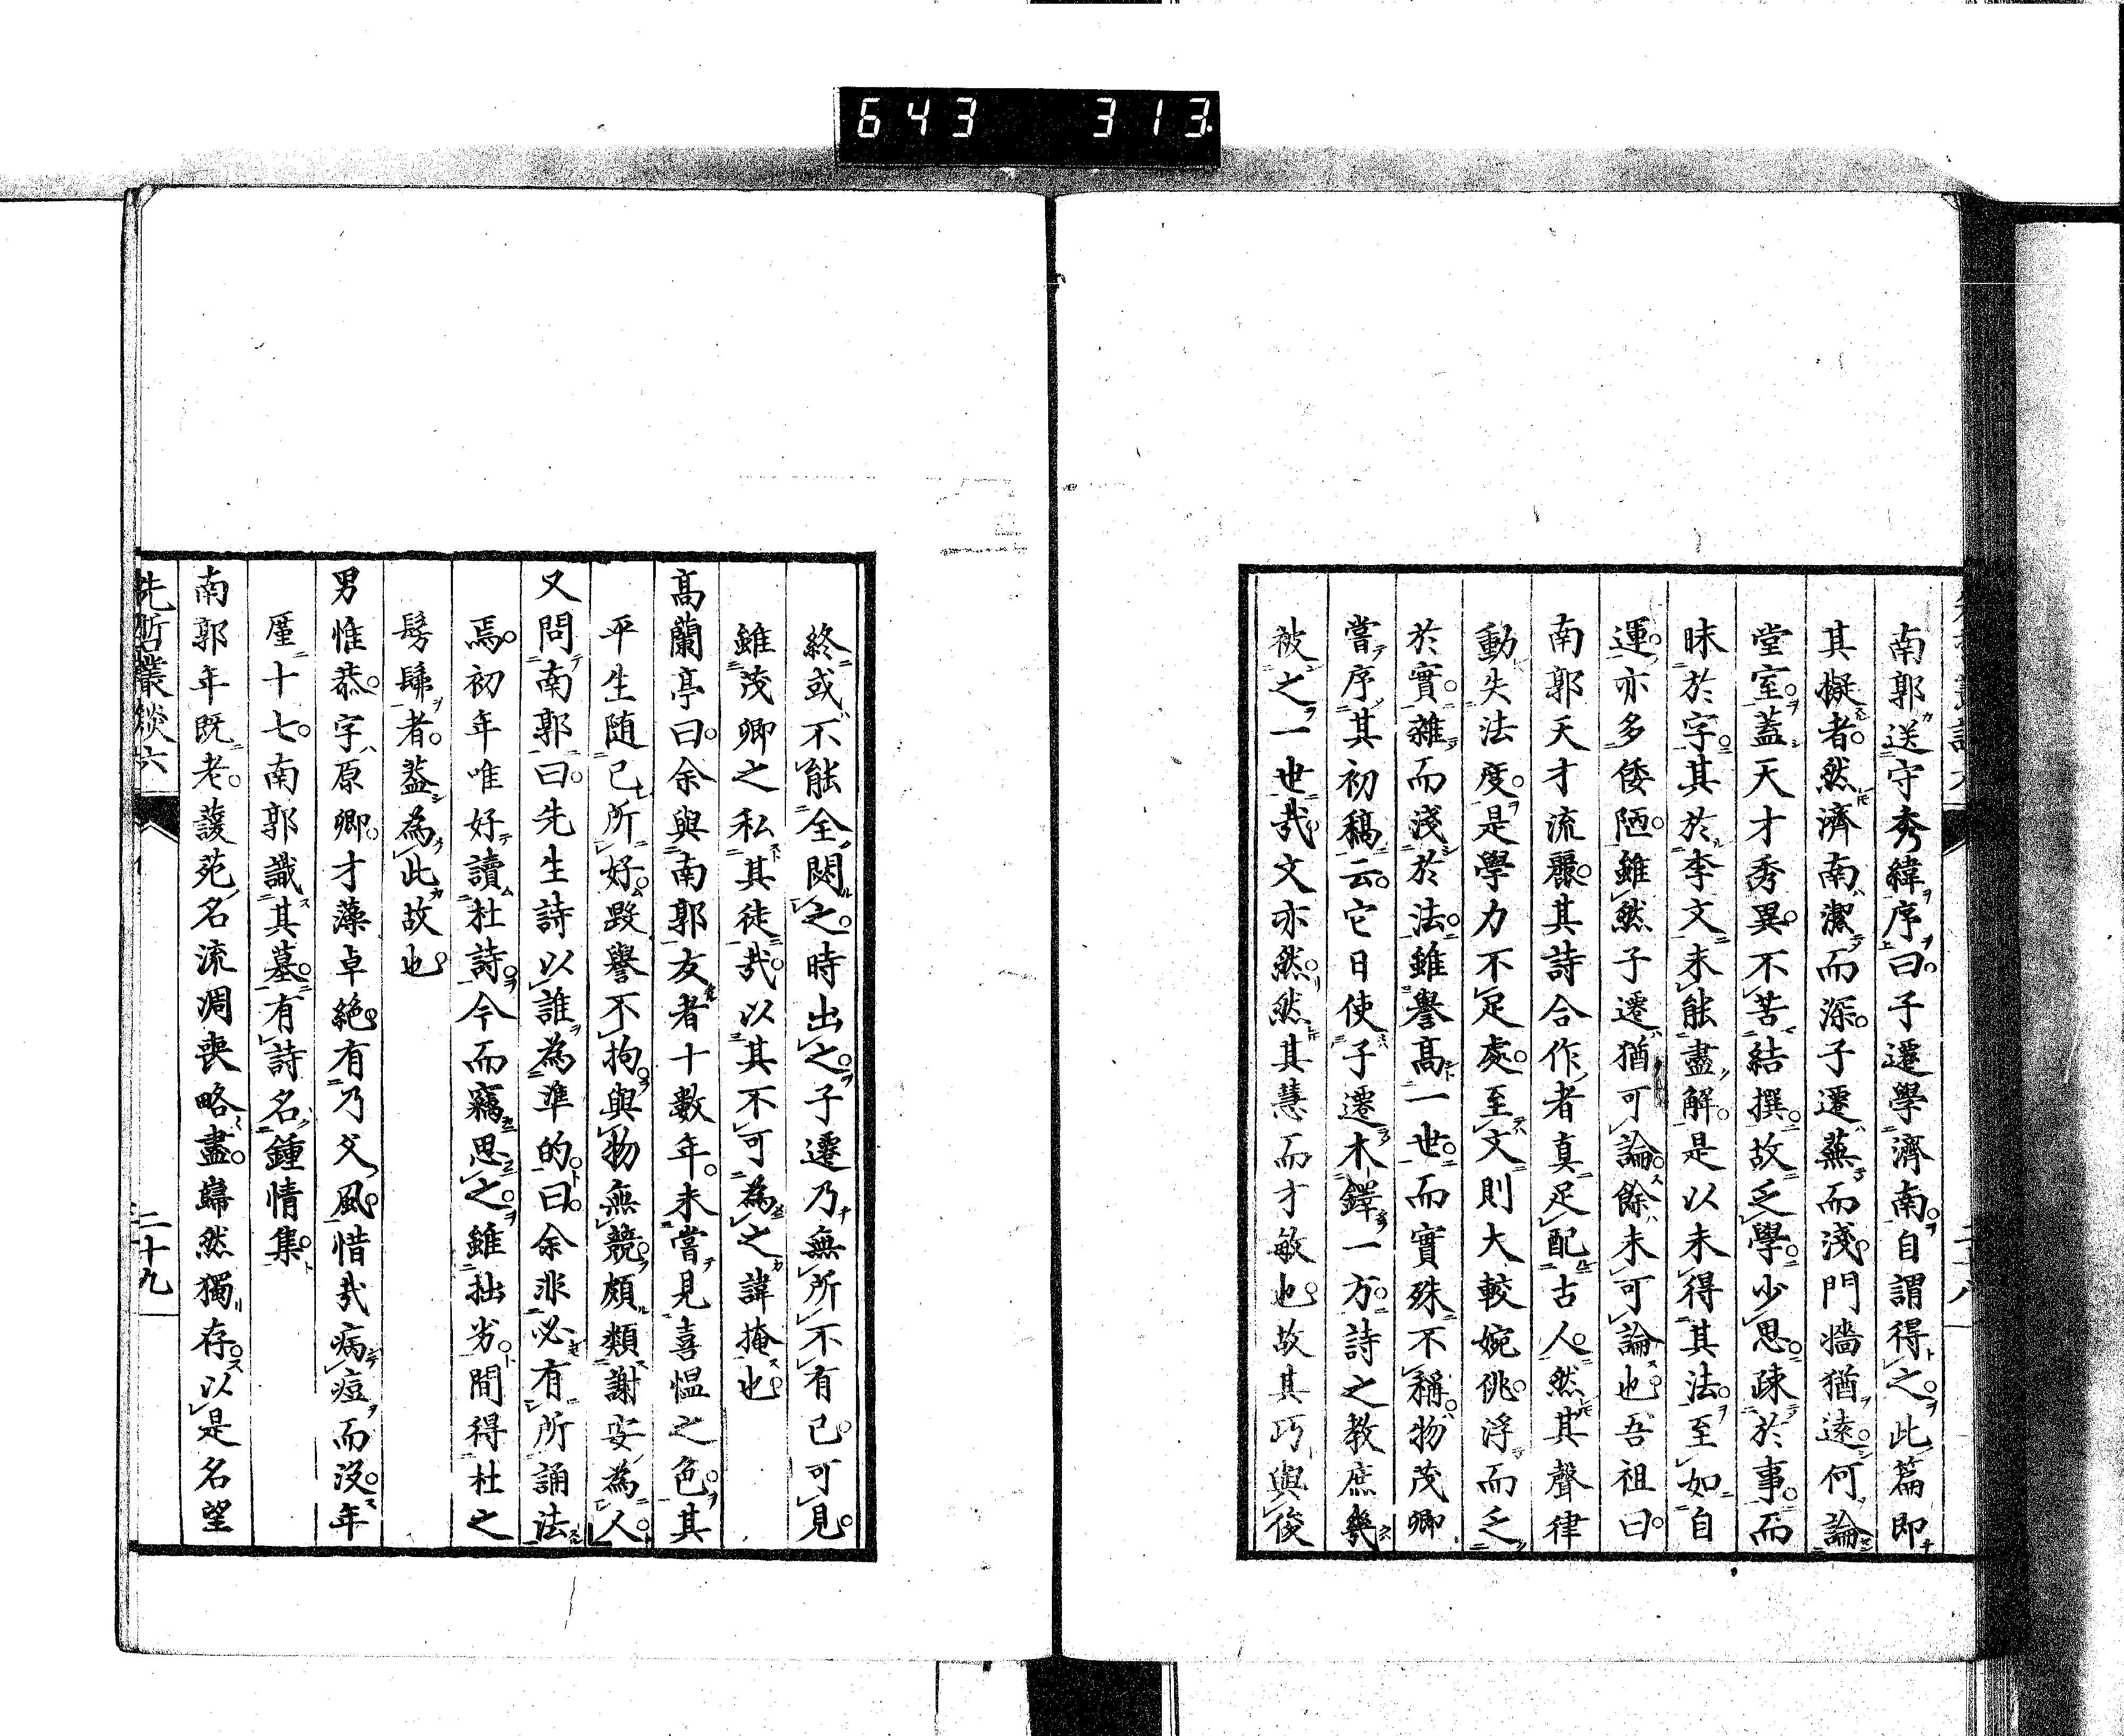 643 313
南郭送守秀緯序曰子遷學濟南自謂得之此篇即
其擬者然濟南潔而深子遷蕪而淺門墻猶遠何論
堂室蓋天才秀異不苦結撰故乏學少思疎於事而
昧於字其於李文未能盡解是以未得其法至如自
運亦多倭陋雖然子遷猶可論餘未可論也吾祖曰
南郭天才流麗其詩合作者真足配古人然其聲律
動失法度是學力不足處至文則大較婉佻浮而乏
於實雜而淺於法雖譽高一世而實殊不稱物茂卿
嘗序其初稿云它日使子遷木鐸一方詩之教庶幾
被之一世哉文亦然然其慧而才敏也故其巧與後
終或不能全閟之時出之子遷乃無所不有已可見
雖茂卿之私其徒哉以其不可為之諱掩也
高蘭亭曰余與南郭友者十數年未嘗見喜慍之色其
平生随己所好毀譽不拘與物無競頗類謝安為人
又問南郭曰先生詩以誰為準的曰余非必有所誦法
焉初年唯好讀杜詩今而竊思之雖拙劣間得杜之
髣髴者蓋為此故也
男惟恭字原卿才藻卓絕有乃父風惜哉病痘而沒年
厪十七南郭識其墓有詩名鍾情集
南郭年既老蘐苑名流凋喪略盡巋然獨存以是名望
先哲叢談六
二十九